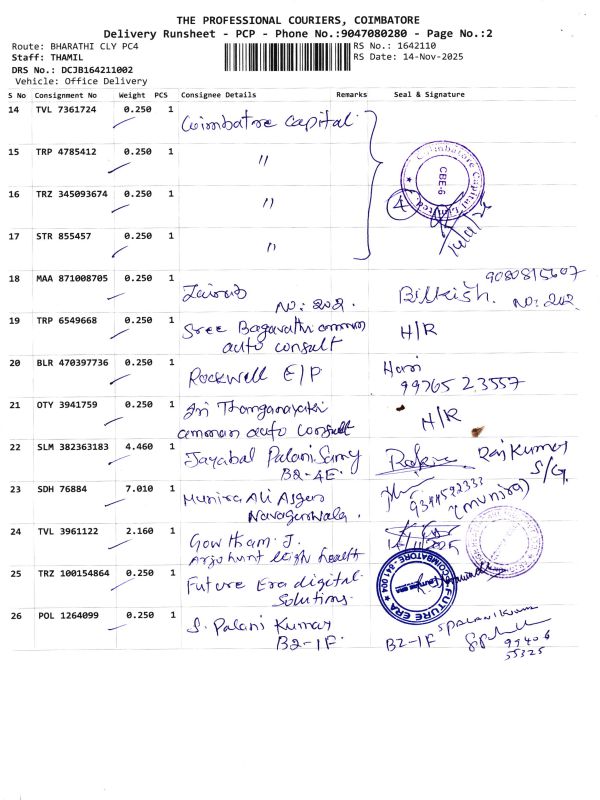 THE PROFESSIONAL COURIERS, COIMBATORE
Delivery Runsheet - PCP - Phone No.:9047080280 - Page No.:2
Route: BHARATHI CLY PC4 RS No.: 1642110
Staff: THAMIL RS Date: 14-Nov-2025
DRS No.: DCJB164211002
Vehicle: Office Delivery
S No Consignment No Weight PCS Consignee Details Remarks Seal & Signature
14 TVL 7361724 0.250 1 Coimbatore Capital
15 TRP 4785412 0.250 1 "
Coimbatore Capital Limited
CBE-6
16 TRZ 345093674 0.250 1 " 4
17 STR 855457 0.250 1 "
18 MAA 871008705 0.250 1 9080815607
Zainab Bilkish.
NO: 202. NO: 202
19 TRP 6549668 0.250 1 Sree Bagavathi amman H/R
auto consult
20 BLR 470397736 0.250 1 Hari
Rockwell E/P 99765 23557
21 OTY 3941759 0.250 1 Sri Thanganayaki H/R
amman auto consult
22 SLM 382363183 4.460 1 Jayabal Palani Samy Raj Kumar
B2-4E. S/G.
23 SDH 76884 7.010 1 Munira Ali Asger (Munira)
24 TVL 3961122 2.160 1 Gowtham. J.
health
25 TRZ 100154864 0.250 1 Future Era digital
Solutions.
FUTURE ERA COIMBATORE - 641 004
26 POL 1264099 0.250 1 S. Palani Kumar
B2-1F. B2-1F 99406
55325